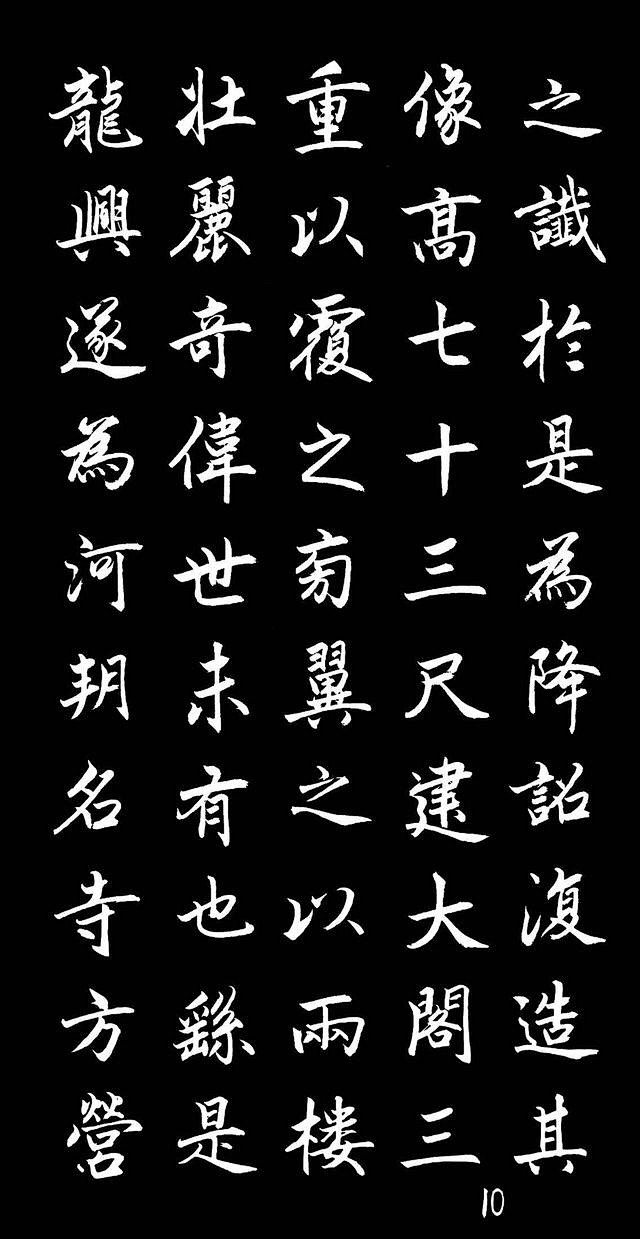 之讖於是為降詔復造其
像高七十三尺建大閣三
重以覆之旁翼之以兩樓
壯麗奇偉世未有也繇是
龍興遂為河朔名寺方營
10